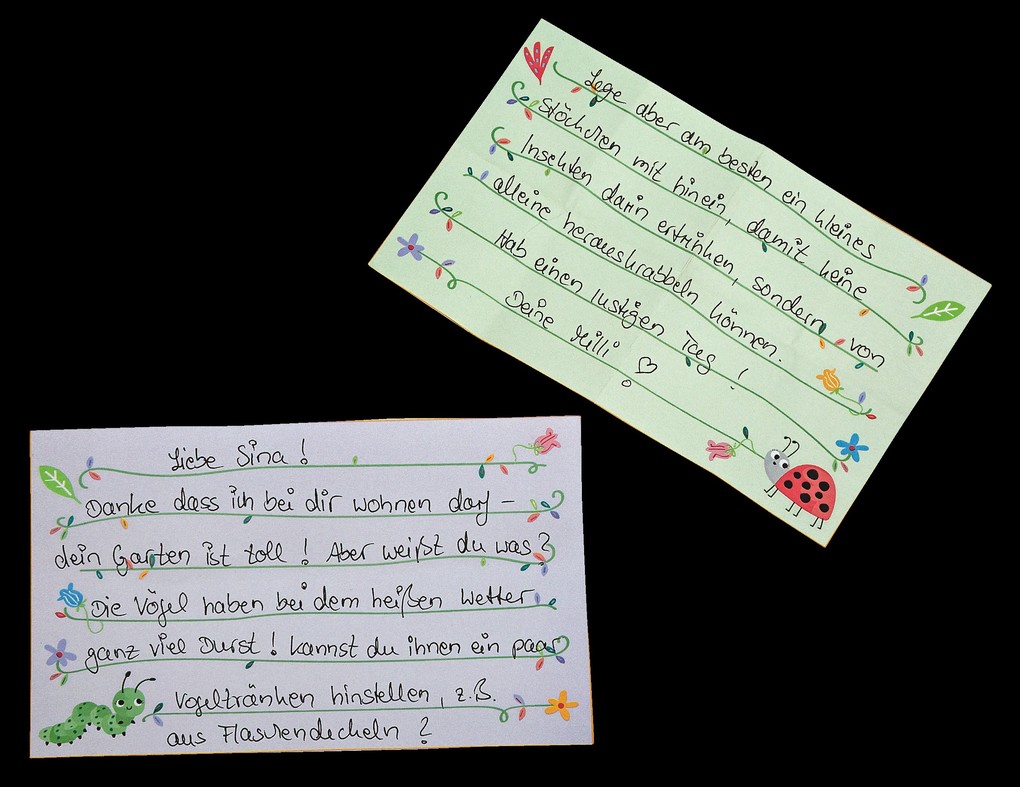 Liebe Sina!
Danke dass ich bei dir wohnen darf –
dein Garten ist toll! Aber weißt du was?
Die Vögel haben bei dem heißen Wetter
ganz viel Durst! Kannst du ihnen ein paar
Vogeltränken hinstellen, z.B.
aus Flaschendeckeln?
Lege aber am besten ein kleines
Stöckchen mit hinein, damit keine
Insekten darin ertrinken, sondern von
alleine herauskrabbeln können.
Hab einen lustigen Tag!
Deine Milli!